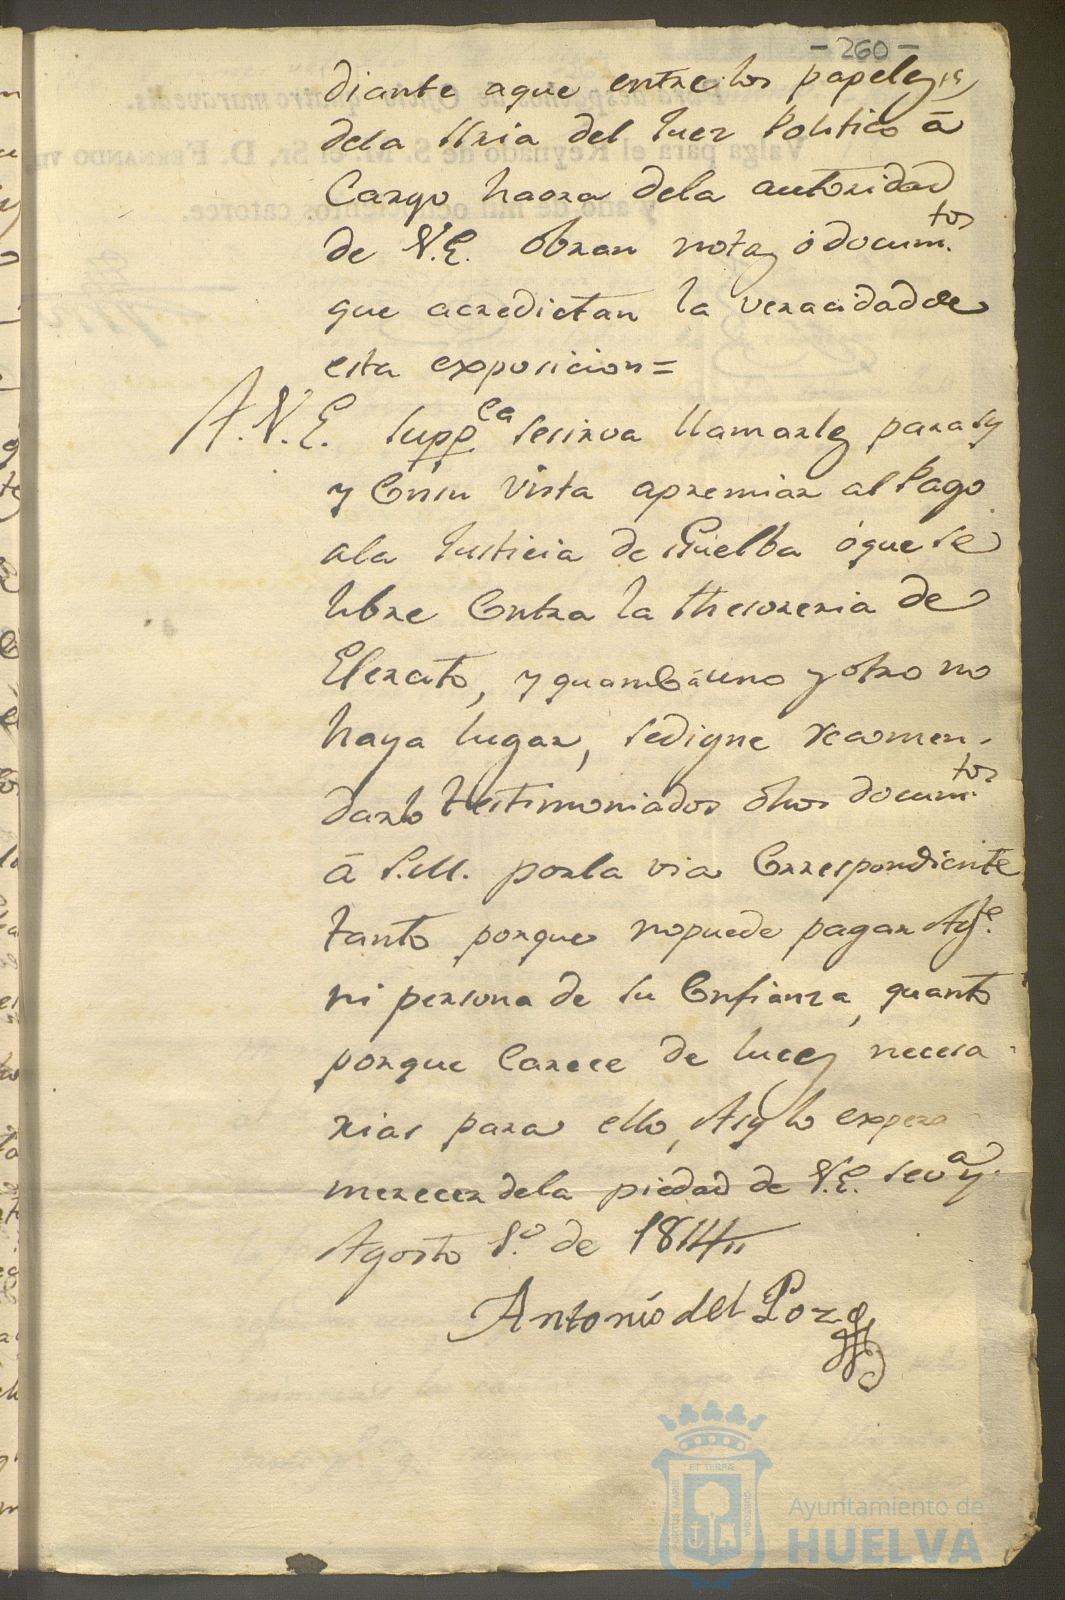 - 260 -
diante aque entre los papeles
dela Sria del Juez Politico â
Cargo haora dela autoridad
de V.E. obran notas ó documtos
que acredictan la veracidad de
esta exposicion=
A.V.E. Suppca sesirva llamarles parasy
y Ensu vista apremiar al Pago
ala Justicia de Huelba ó que se
libre Contra la thesoreria de
Exercito, y quando âuno y otro no
haya lugar, sedigne recomen-
darlo testimoniados dhos documtos
â S.M. porla via Correspondiente
tanto porque nopuede pagar Agte
ni persona de su Confianza, quanto
porque Carece de luces necesa-
rias para ello, Asy lo expera
merecer dela piedad de V.E. Seva y
Agosto 1.º de 1814
Antonio del Pozo
ET TERRAE
Ayuntamiento de
HUELVA